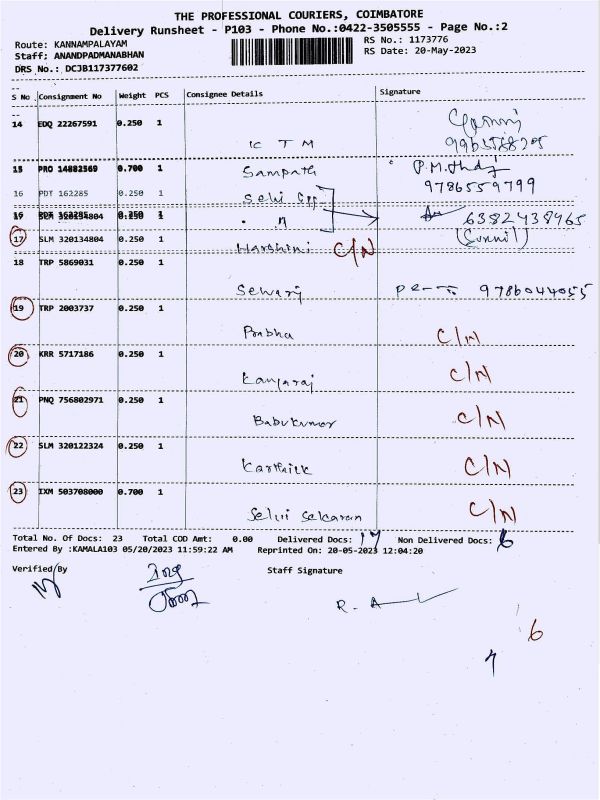 THE PROFESSIONAL COURIERS, COIMBATORE
Delivery Runsheet - P103 - Phone No.:0422-3505555 - Page No.:2
Route: KANNAMPALAYAM RS No.: 1173776
Staff; ANANDPADMANABHAN RS Date: 20-May-2023
DRS No.: DCJB117377602
S No Consignment No Weight PCS Consignee Details Signature
14 EDQ 22267591 0.250 1
IC T M
15 PRO 14882569 0.700 1
Sampath 9786559799
16 PDT 162285 0.250 1
Selvi
SLM 320134804 6382438965
17 SLM 320134804 0.250 1 (Sunil)
Harshini C/N
18 TRP 5869031 0.250 1
Selvaraj 9786044055
19 TRP 2003737 0.250 1
Prabha C/N
20 KRR 5717186 0.250 1
Kanjaraj C/N
21 PNQ 756802971 0.250 1
Babukumar C/N
22 SLM 320122324 0.250 1
Karthick C/N
23 IXM 503708000 0.700 1
Selvi C/N
Total No. Of Docs: 23 Total COD Amt: 0.00 Delivered Docs: 17 Non Delivered Docs: 6
Entered By :KAMALA103 05/20/2023 11:59:22 AM Reprinted On: 20-05-2023 12:04:20
Verified By Staff Signature
6